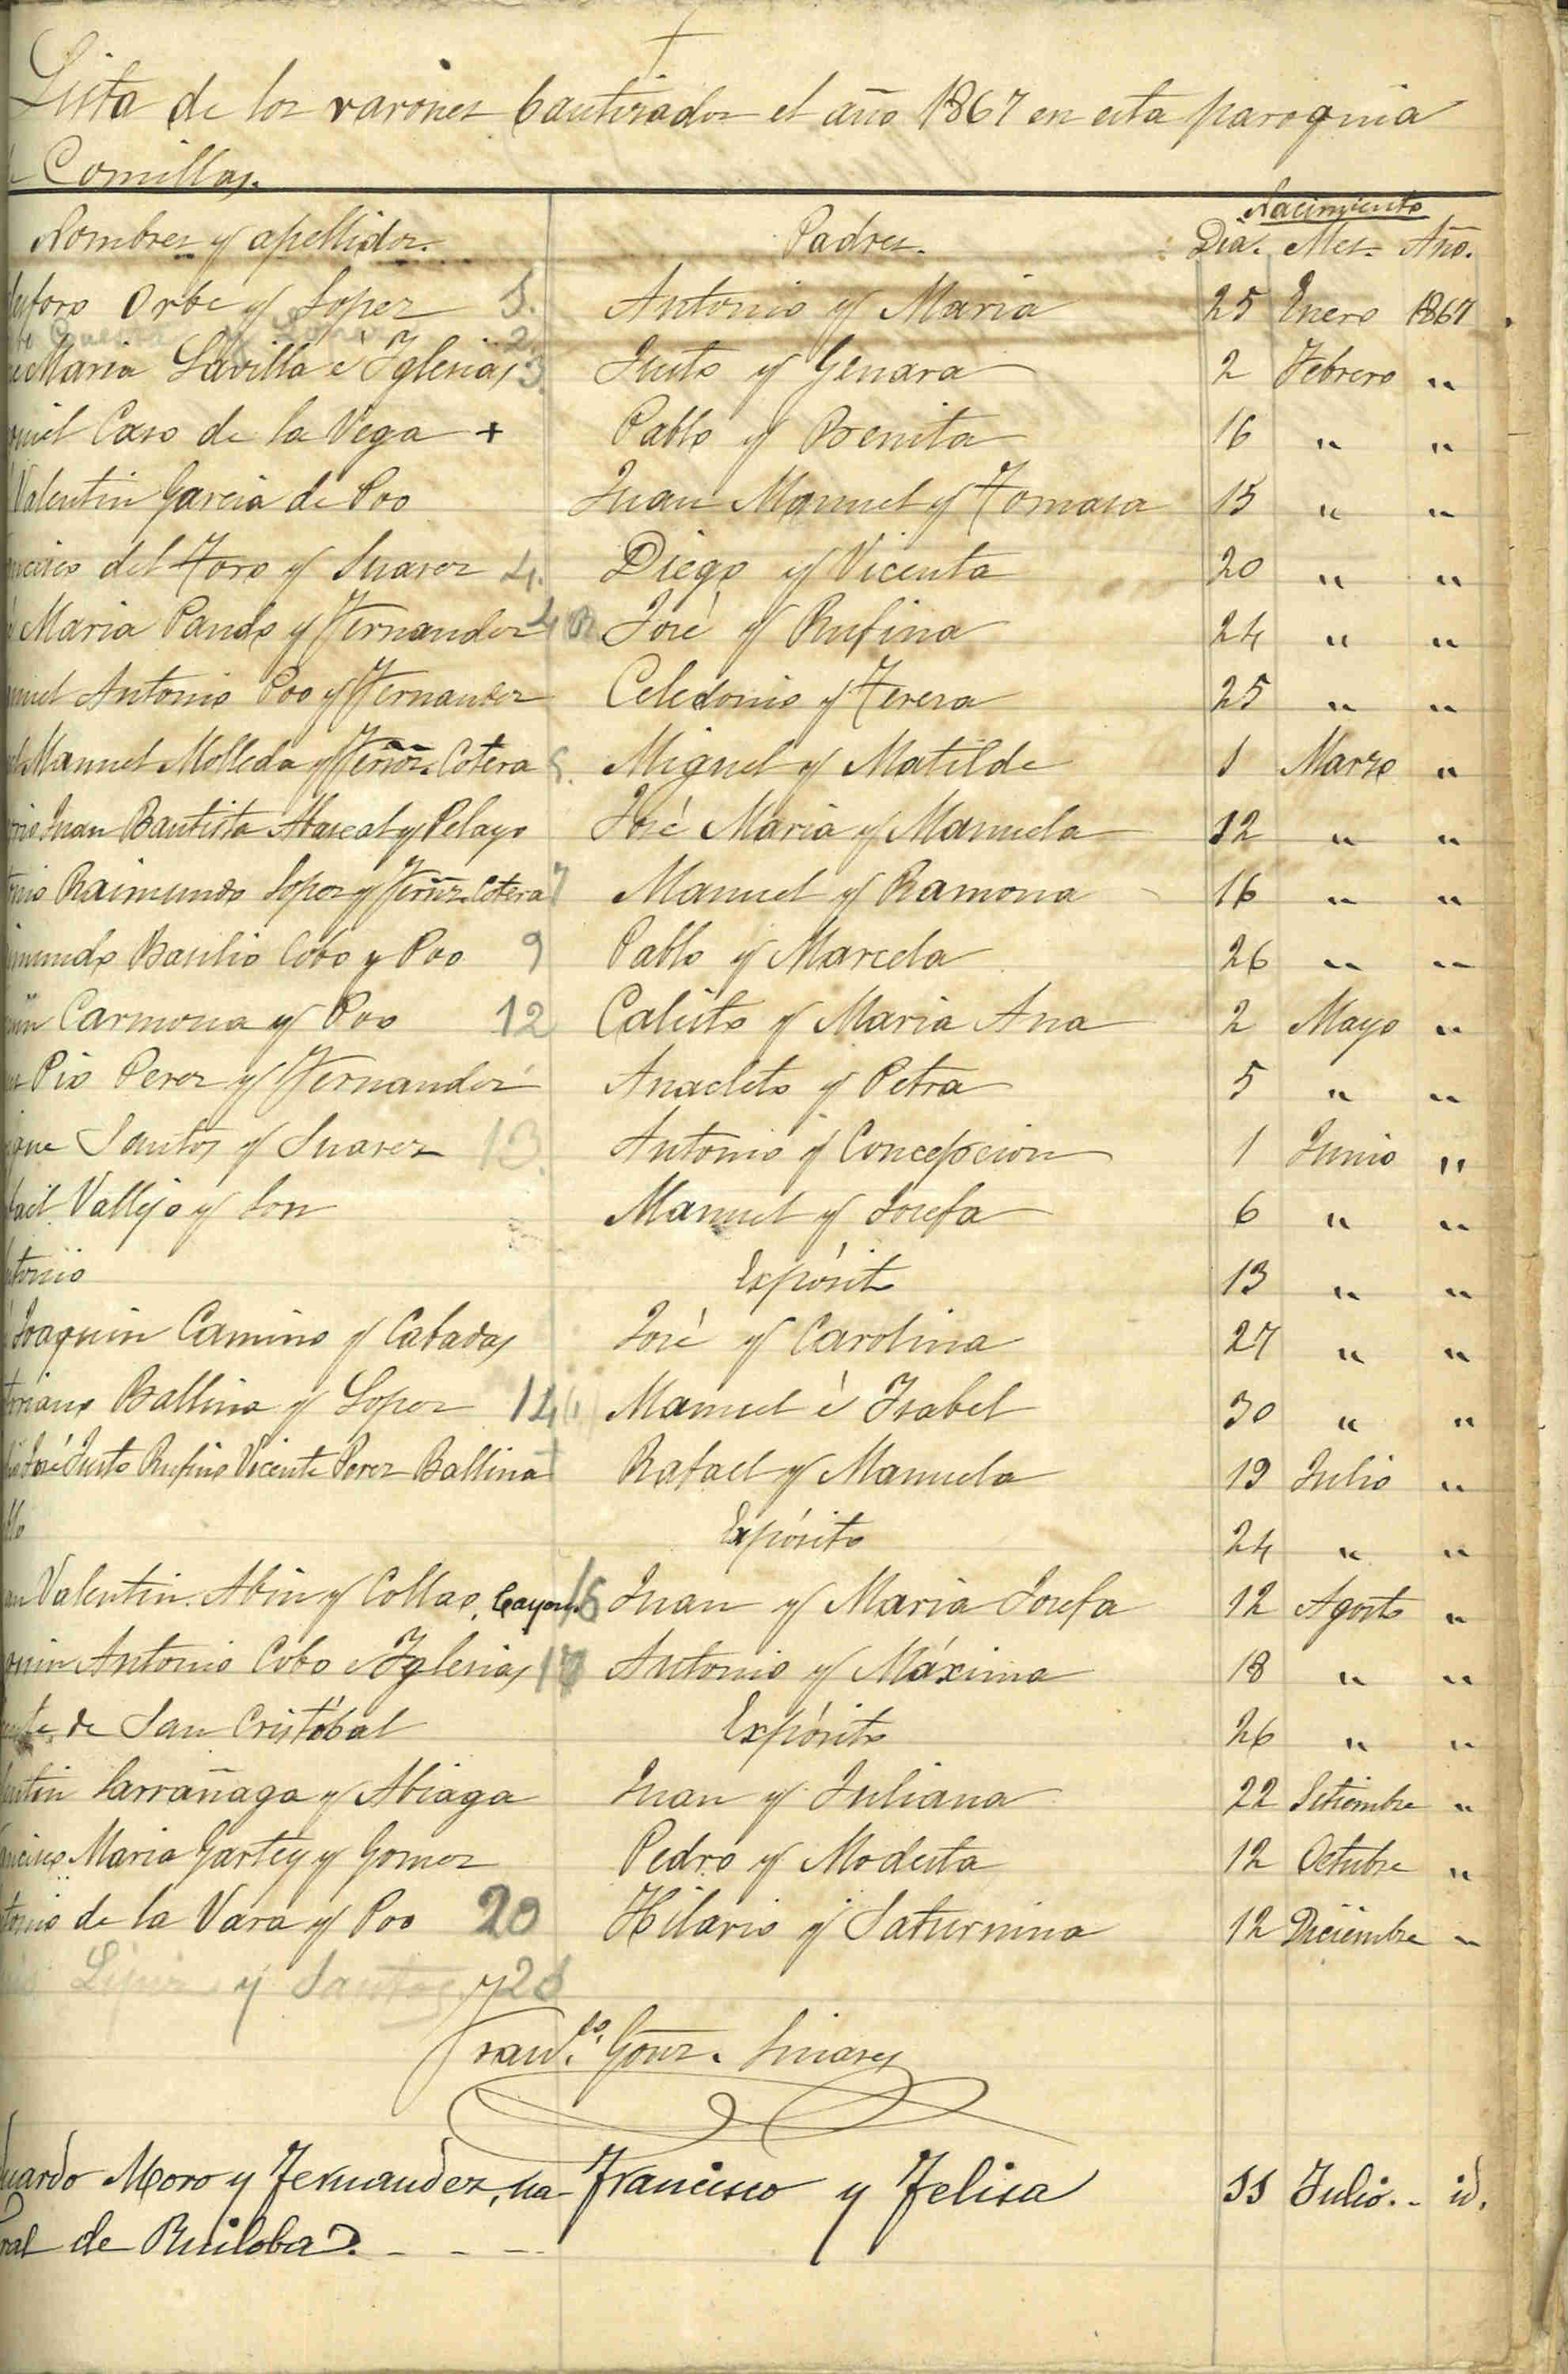 Lista de los varones bautizados el año 1867 en esta paroquia
Comillas.
Nacimiento
Nombres y apellidos. Padres. Dia. Mes. Año.
Orbe y Lopez 1. Antonio y Maria 25 Enero 1867
2.
Maria Lavilla é Iglesias 3. Justo y Genara 2 Febrero "
Caso de la Vega + Pablo y Benita 16 " "
Valentin Garcia de Poo Juan Manuel y Tomasa 15 " "
del Toro y Suarez 4. Diego y Vicenta 20 " "
Maria Pando y Fernandez 4 José y Rufina 24 " "
Antonio Poo y Fernandez Celedonio y Teresa 25 " "
Manuel Molleda y Fernz. Cotera Miguel y Matilde 1 Marzo "
Juan Bautista Abascal y Pelayo José Maria y Manuela 12 " "
Raimundo Lopez y Fernz. Cotera 7 Manuel y Ramona 16 " "
Basilio Cobo y Poo 9 Pablo y Marcela 26 " "
Carmona y Poo 12 Calisto y Maria Ana 2 Mayo "
Pio Perez y Fernandez Anacleto y Petra 5 " "
Santos y Suarez 13. Antonio y Concepcion 1 Junio "
Vallejo y Son Manuel y Josefa 6 " "
Expósito 13 " "
Joaquin Camino y Cabadas José y Carolina 27 " "
Ballina y Lopez 14 Manuel é Isabel 30 " "
José Justo Rufino Vicente Perez Ballina Rafael y Manuela 19 Julio "
Expósito 24 " "
Valentin Abin y Collao, Juan y Maria Josefa 12 Agosto "
Antonio Cobo é Iglesias Antonio y Máxima 18 " "
de San Cristóbal Expósito 26 " "
Larrañaga y Abiaga Juan y Juliana 22 Setiembre "
Maria Gartey y Gomez Pedro y Modesta 12 Octubre "
de la Vara y Poo 20 Hilario y Saturnina 12 Diciembre "
y Santos
Franco. Gonz. Linares
Moro y Fernandez, na- Francisco y Felisa 11 Julio.. id.
de Ruiloba.